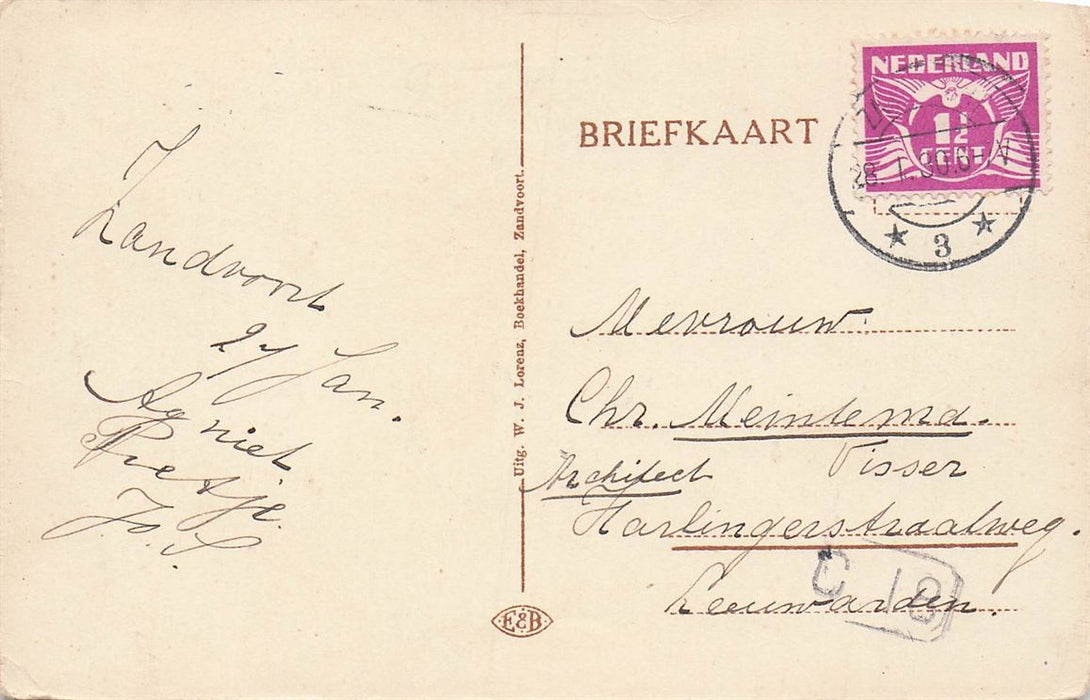 Zandvoort
27 Jan.
Agniet
Pietje.
Jo. S.
Uitg. W. J. Lorenz, Boekhandel, Zandvoort.
E&B
BRIEFKAART
NEDERLAND
1½
CENT
28. 1. 30. 6-
3
Mevrouw
Chr. Meintema.
Visser
Architect
Harlingerstraatweg.
Leeuwarden.
C 18